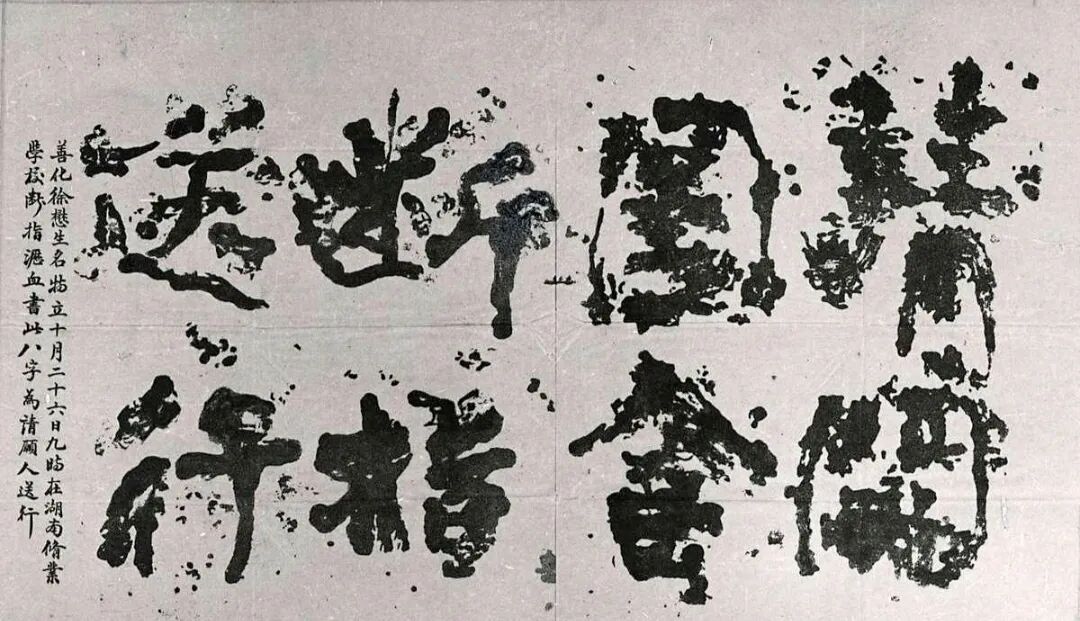 請開
國會
斷指
送行
善化徐懋生名特立十月二十六日九時在湖南脩業
學校断指瀝血書此八字為請願人送行